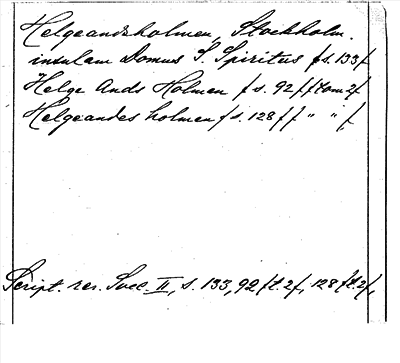 Helgeandsholmen, Stockholm.
insulam Domus S. Spiritus / s. 133/.
Helge Ands Holmen / s. 92/ /tom 2/
Helgeandes holmen / s. 128/ / " " /.
Script. rer. Svec. II, s. 133, 92 /t. 2/, 128 /t. 2/,